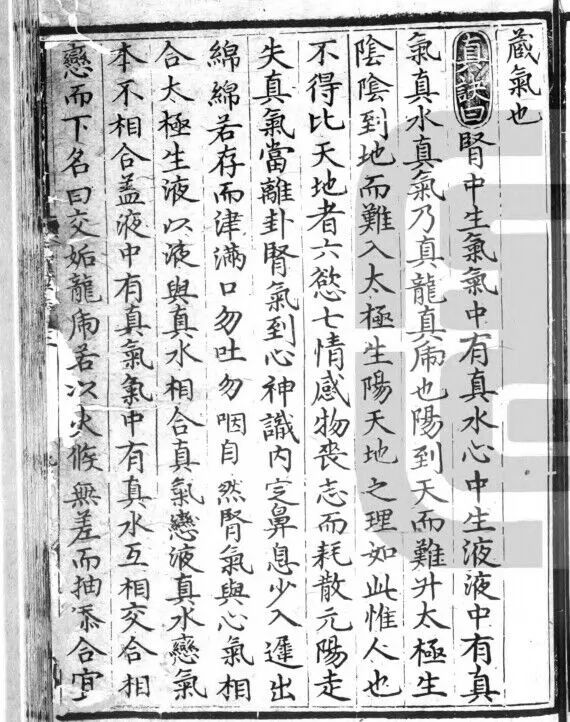 蔵氣也
真訣曰腎中生氣氣中有真水心中生液液中有真
氣真水真氣乃真龍真虎也陽到天而難升太極生
陰陰到地而難入太極生陽天地之理如此惟人也
不得比天地者六慾七情感物丧志而耗散元陽走
失真氣當離卦腎氣到心神識内定鼻息少入遲出
綿綿若存而津滿口勿吐勿咽自然腎氣與心氣相
合太極生液以液與真水相合真氣戀液真水戀氣
本不相合盖液中有真氣氣中有真水互相交合相
戀而下名曰交姤龍虎若以火候無差而抽添合宜